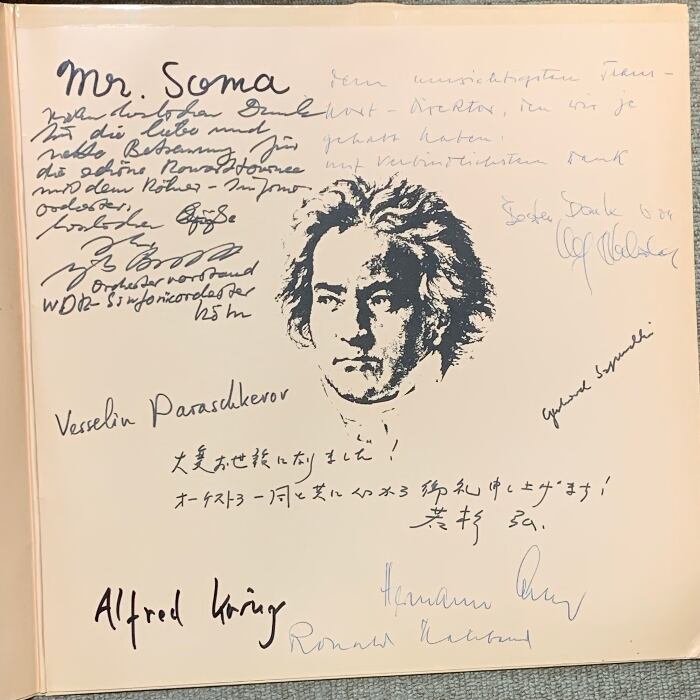 Mr. Soma
vielen herzlichen Dank
für die liebe und
nette Betreuung für
die schöne Konzerttournee
mit dem Kölner-Sinfonie
orchester.
herzlichen Grüße
Orchestervorstand
WDR-Sinfonieorchester
Köln
dem umsichtigsten Trans-
port-Direktor, den wir je
gehabt haben.
mit verbindlichstem Dank
Besten Dank von
Vesselin Paraschkevov
大変お世話になりました!
オーケストラ一同と共に心から御礼申し上げます!
若杉 弘.
Gerhard
Alfred
Hermann
Ronald